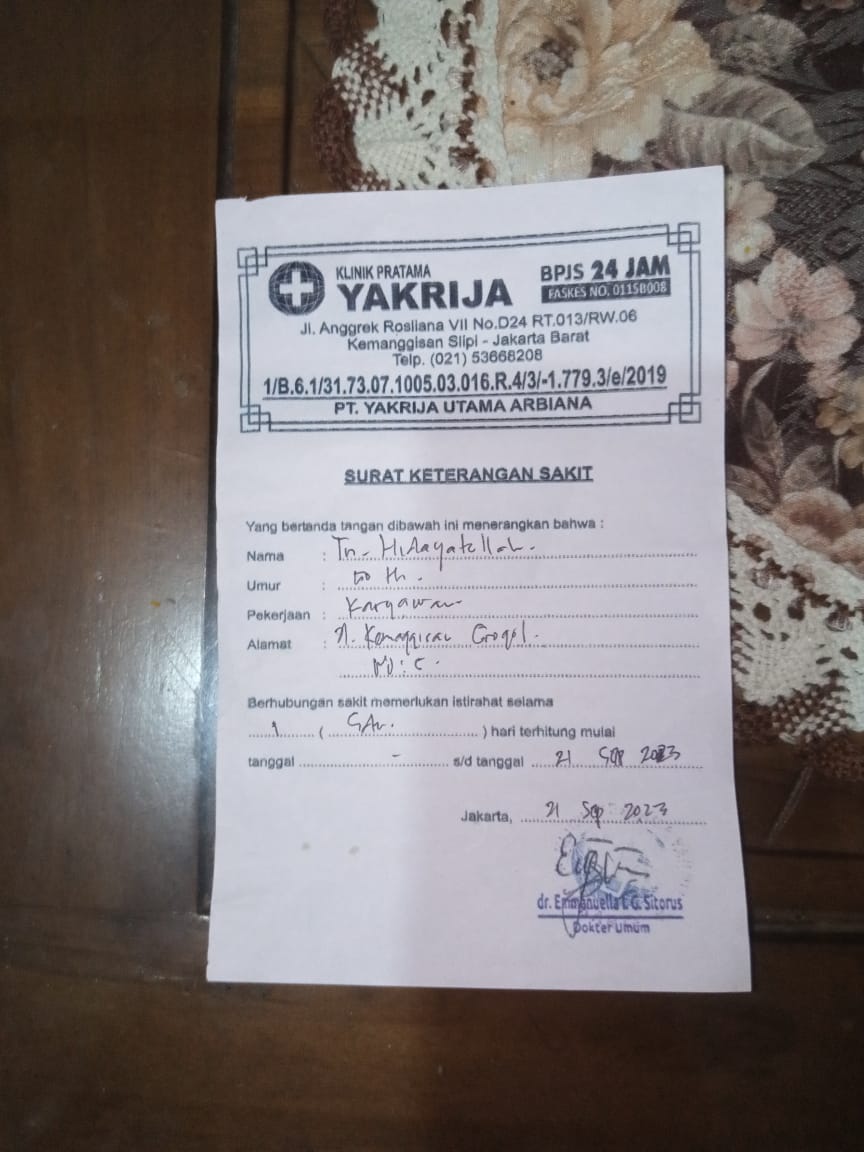 KLINIK PRATAMA
YAKRIJA
BPJS 24 JAM
FASKES NO. 0115B008
Jl. Anggrek Rosliana VII No.D24 RT.013/RW.06
Kemanggisan Slipi - Jakarta Barat
Telp. (021) 53668208
1/B.6.1/31.73.07.1005.03.016.R.4/3/-1.779.3/e/2019
PT. YAKRIJA UTAMA ARBIANA
SURAT KETERANGAN SAKIT
Yang bertanda tangan dibawah ini menerangkan bahwa :
Nama : Tn. Hidayatullah.
Umur : th.
Pekerjaan : Karyawan
Alamat : Jl. Kemanggisan Grogol.
No: 
Berhubungan sakit memerlukan istirahat selama
1 ( ) hari terhitung mulai
tanggal - s/d tanggal 21 Sep 2023
Jakarta, 21 Sep 2023
dr. Emmanuella Sitorus
Dokter Umum